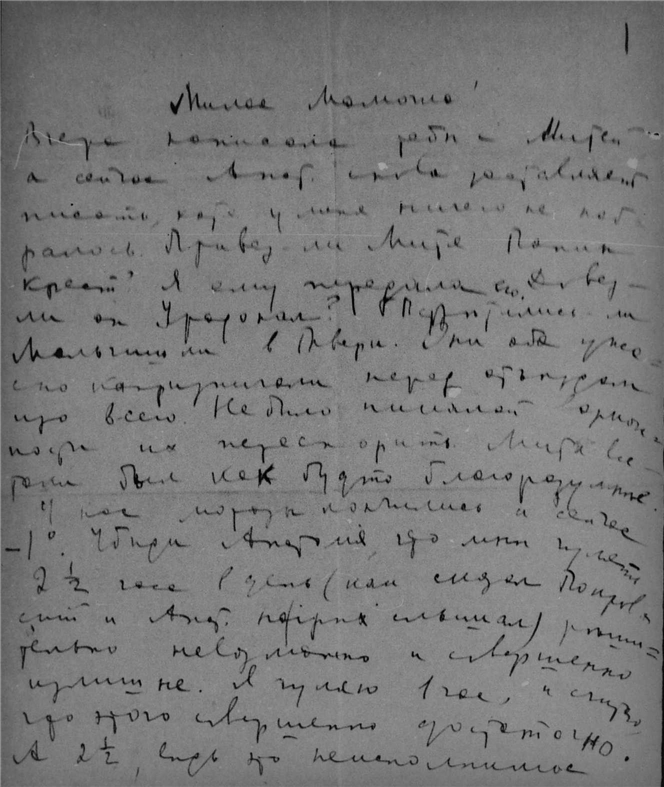 1
Милая Мамочка!
Вчера написала тебе с Митей
а сейчас Анат. снова заставляет
писать, хотя у меня ничего не наб-
ралось. Привез-ли Митя Папин
крест? Я ему передала его. Довез-
ли он Уродонал?
мальчишки в Твери. Они оба ужа-
сно капризничали перед отъездом
из-за всего. Не было никакой
их Митя все-
таки был как будто благоразумнее.
У нас морозы кончились и сейчас
-1°. Убеди Анатолия, что мне гулять
2 1/2 часа в день (как сказал
и Анат. слышал) реши-
тельно невозможно и совершенно
излишне. Я гуляю 1 час, и
что этого совершенно достаточно.
А 2 1/2, ведь это неисполнимое